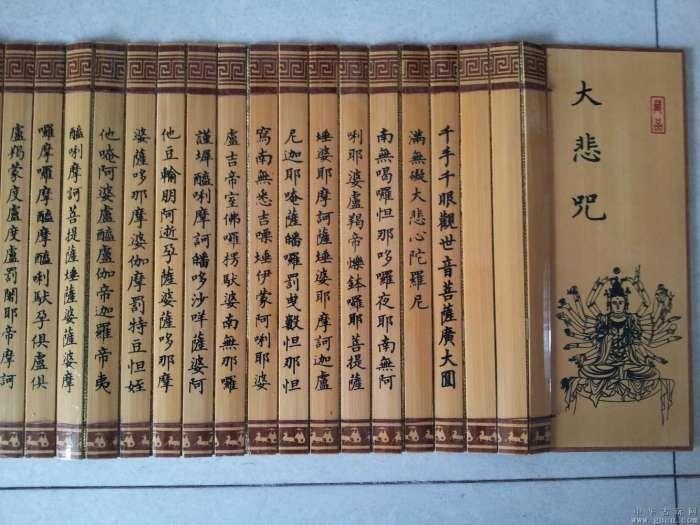 大悲咒
千手千眼觀世音菩薩廣大圓
滿無礙大悲心陀羅尼
南無喝囉怛那哆囉夜耶南無阿
唎耶婆盧羯帝爍鉢囉耶菩提薩
埵婆耶摩訶薩埵婆耶摩訶迦盧
尼迦耶唵薩皤囉罰曳數怛那怛
寫南無悉吉嘌埵伊蒙阿唎耶婆
盧吉帝室佛囉楞馱婆南無那囉
謹墀醯唎摩訶皤哆沙咩薩婆阿
他豆輸朋阿逝孕薩婆薩哆那摩
婆薩哆那摩婆伽摩罰特豆怛姪
他唵阿婆盧醯盧伽帝迦羅帝夷
醯唎摩訶菩提薩埵薩婆薩婆摩
囉摩囉摩醯摩醯唎馱孕俱盧俱
盧羯蒙度盧度盧罰闍耶帝摩訶
中华古玩网
www.gucn.com